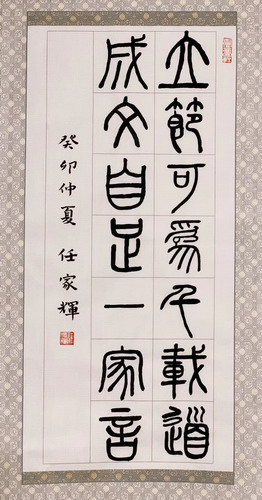 立節可為千載道
成文自足一家言
癸卯仲夏 任家輝